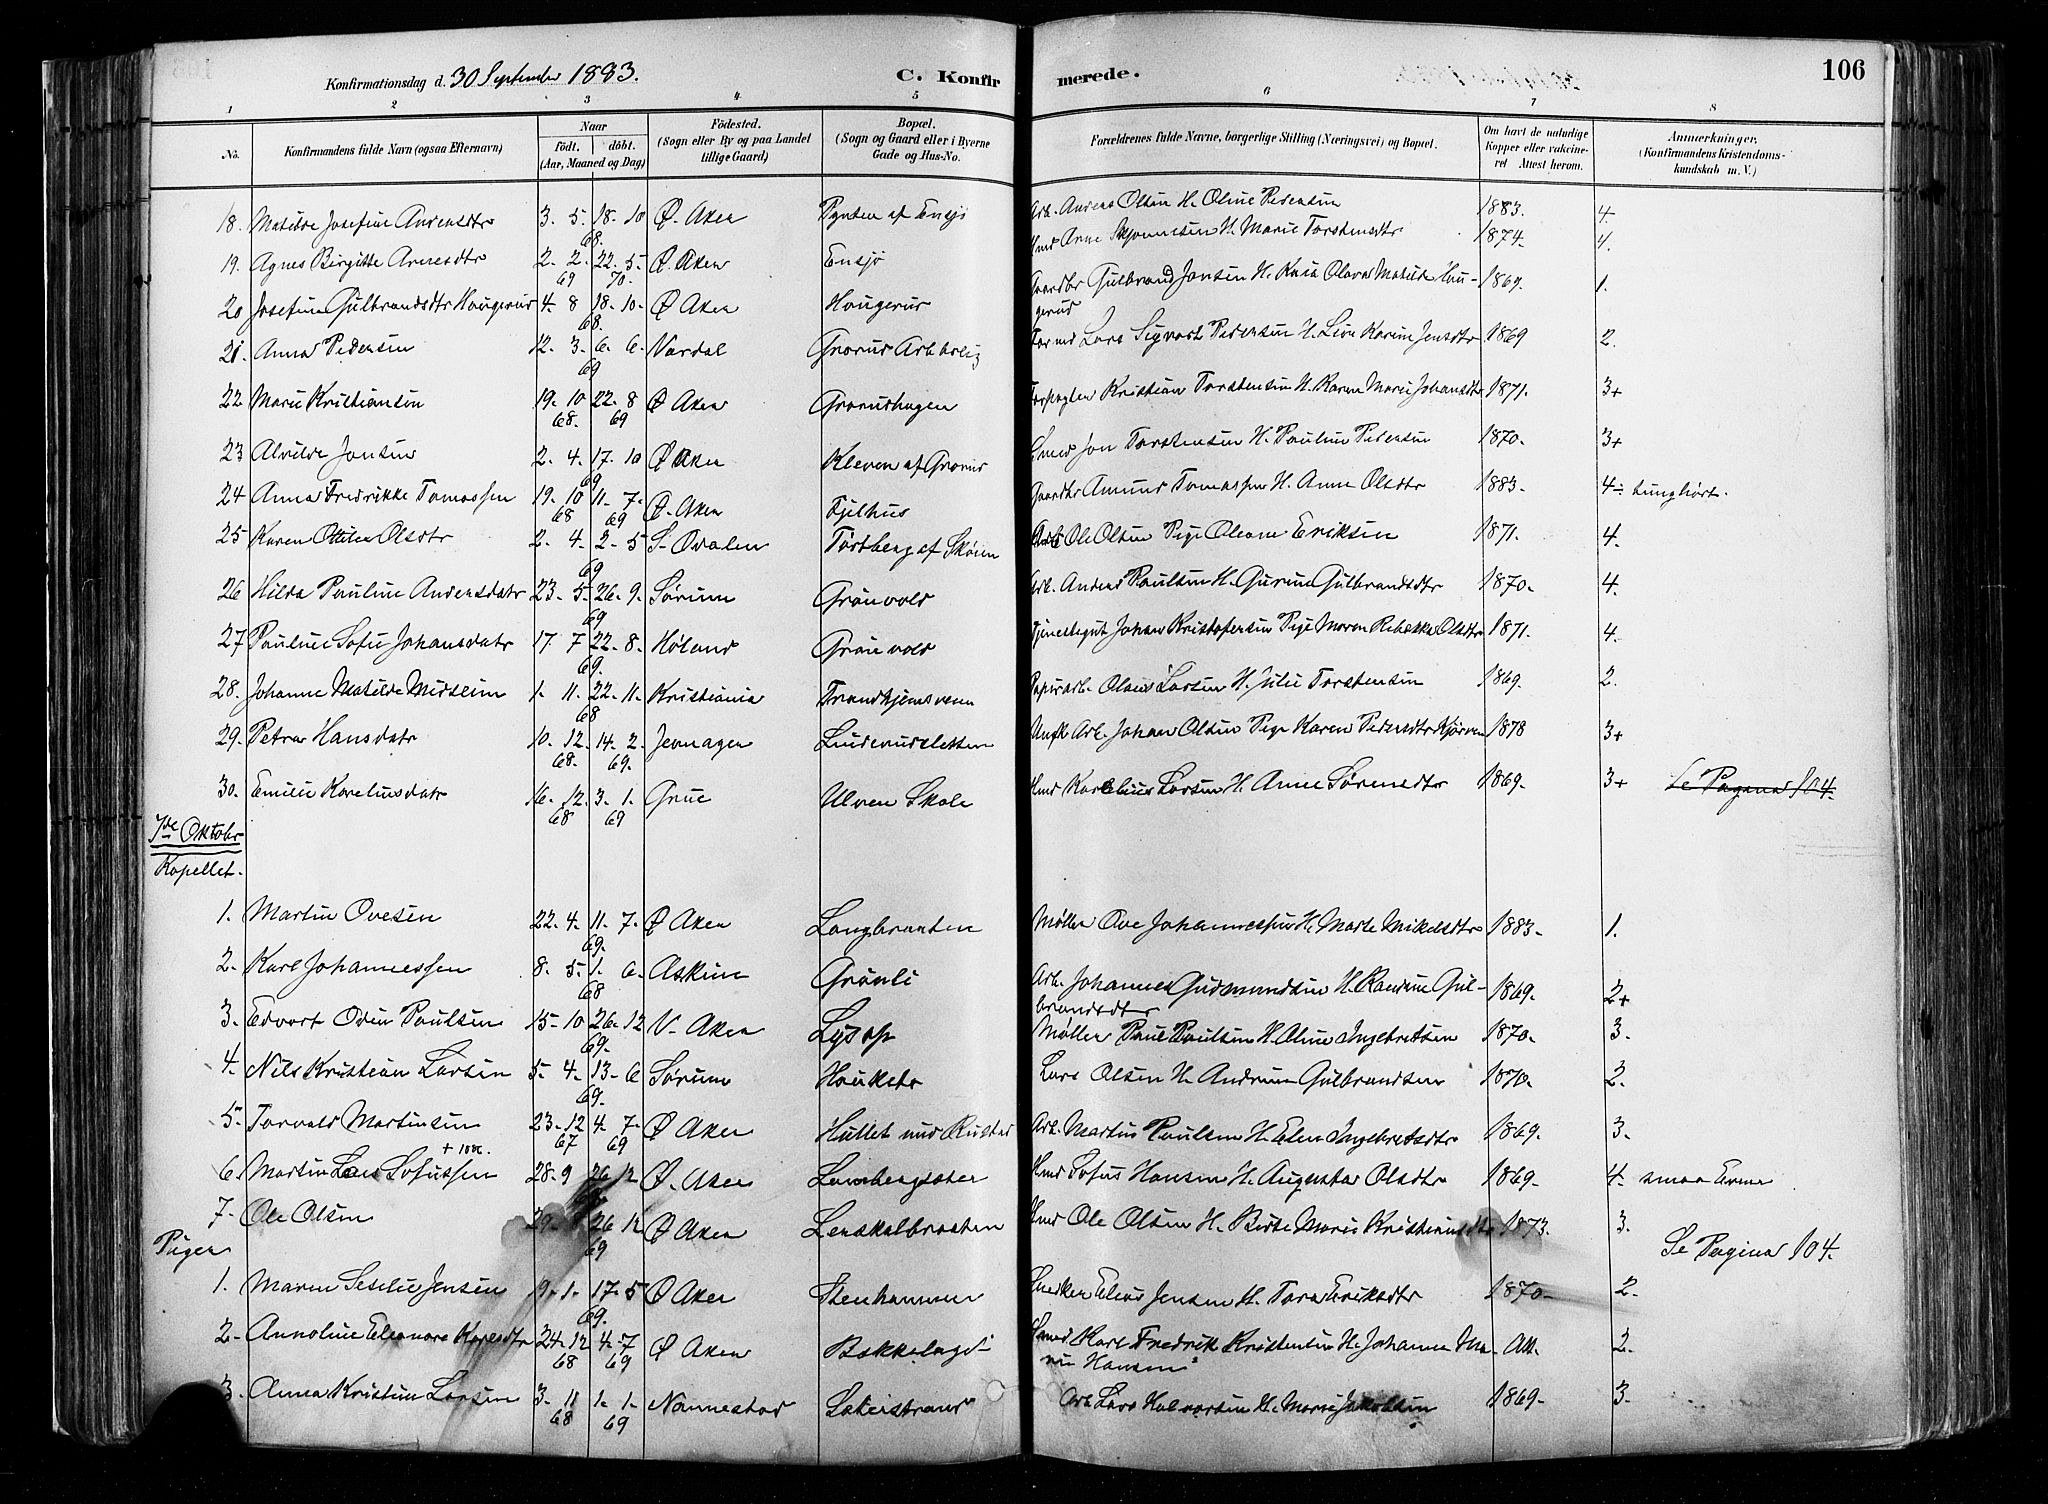 106
Konfirmationsdag d. 30 September 1883.
C. Konfir merede.
1 2 3 4 5 6 7 8
No. Konfirmandens fulde Navn (ogsaa Efternavn) Naar födt. döbt. (Aar, Maaned og Dag) Födested. (Sogn eller By og paa Landet tillige Gaard) Bopæl. (Sogn og Gaard eller i Byerne Gade og Hus-No. Forældrenes fulde Navne, borgerlige Stilling (Næringsvei) og Bopæl. Om havt de naturlige Kopper eller vakcineret Attest herom. Anmerkninger, (Konfirmandens Kristendomskundskab m. V.)
18. Matilde Josefine Andersdtr 3. 5. 18. 10 68. Ø. Aker Pynten af Ensjø Arb. Anders Olsen H. Oline Pedersen 1883. 4.
19. Agnes Birgitte Arnesdtr 2. 2. 69 22. 5. 70. Ø. Aker Ensjø Arne H. Marie Torstensdtr 1874. 4.
20 Josefine Gulbrandsdtr Haugerud 4. 8 18. 10. 68. Ø Aker Haugerud Gaardbr Gulbrand Jensen H. Olava Matilde Haugerud 1869. 1.
21. Anna Pedersen 12. 3. 6. 6. 69 Vardal Grorud Arbbolig Lars Sigvart Pedersen H. Karine Jensdtr 1869 2.
22 Marie Kristiansen 19. 10 68. 22. 8 69 Ø Aker Grorudhagen Forpagter Kristian Torstensen H. Karen Marie Johansdtr 1871. 3+
23 Alvilde Jensen 2. 4. 17. 10 69 Ø Aker Kleven af Grorud Smed Jon Torstensen H. Pauline Pedersen 1870. 3+
24 Anna Fredrikke Tomassen 19. 10 68 11. 7. 69 Ø. Aker Fjelhus Gaardbr Amund Tomassen H. Anne Olsdtr 1883. 4÷ tunghørt.
25 Karen Otilie Olsdtr 2. 4. 2. 5 69 S. Odalen Tørtberg af Skøien Arb Ole Olsen Pige Oleane Eriksen 1871. 4.
26 Hilda Pauline Andersdatr 23. 5. 26. 9. 69 Sørum Grønvold Arb. Anders Paulsen H. Gurine Gulbrandsdtr 1870. 4.
27 Pauline Sofie Johansdatr 17 7 22. 8. 69. Høland Grønvold Tjenestegut Johan Kristofersen Pige Maren Rebekka Olsdtr 1871. 4.
28. Johanne Matilde Midseim 1. 11. 22. 11. 68 Kristiania Trondhjemsveien Papirarb. Olaus Larsen H. Julie Torstensen 1869. 2.
29. Petra Hansdatr 10. 12. 68. 14. 2. 69. Jevnager Linderudsletten Ungk Arb. Johan Olsen Pige Karen Pedersdtr 1878 3+
30. Emilie Kareliusdatr 16. 12. 68 3. 1. 69 Grue Ulven Skole Karelius Larsen H. Anne Sørensdtr 1869. 3+ Se Pagina 104.
7de Oktobr
Kapellet.
1. Martin Ovesen 22. 4. 11. 7. 69. Ø Aker Langbraaten Møller Ove Johannessen H. Marte Mikelsdtr 1883. 1.
2. Karl Johannessen 8. 5. 1. 6. 68 Askim Grønli Arb. Johannes Gudmundsen H. Randine Gulbrandsdtr 1869. 2+
3. Edvart Odin Paulsen 15. 10 26. 12 69. V. Aker Lysop Møller Paul Paulsen H. Oline Ingebretsen 1870. 3.
4. Nils Kristian Larsen 5. 4. 13. 6 69. Sørum Hauketo Lars Olsen H. Andrine Gulbrandsen 1870. 2.
5. Torvald Martinsen 23. 12 67 4. 7. 69 Ø Aker Hullet Rustad Arb. Martin Paulsen H. Elen Ingebretsdtr 1869. 3.
6. Martin Sofussen 28. 9 26 12 Ø. Aker Sofus Hansen H. Augusta Olsdtr 1869. 4. smaa Evner
7. Ole Olsen 26 12 69 Ø Aker Lerskalbraaten Ole Olsen H. Berte Marie Kristiansdtr 1873. 3.
Piger
Se Pagina 104.
1. Maren Seselie Jensen 9. 1. 17. 5 69. Ø Aker Stenhammer Snedker Elias Jensen H. Tara Eriksdtr 1870. 2.
2. Annoline Eleonore Karlsdtr 24. 12 68 4. 7 69 Ø Aker Bækkelaget Smed Karl Fredrik Kristensen H. Johanne Marie Hansen Att. 2.
3. Anna Kristine Larsen 3. 11 68 1. 1. 69 Nannestad Larsen H. Marie Jakobsen 1869. 3.